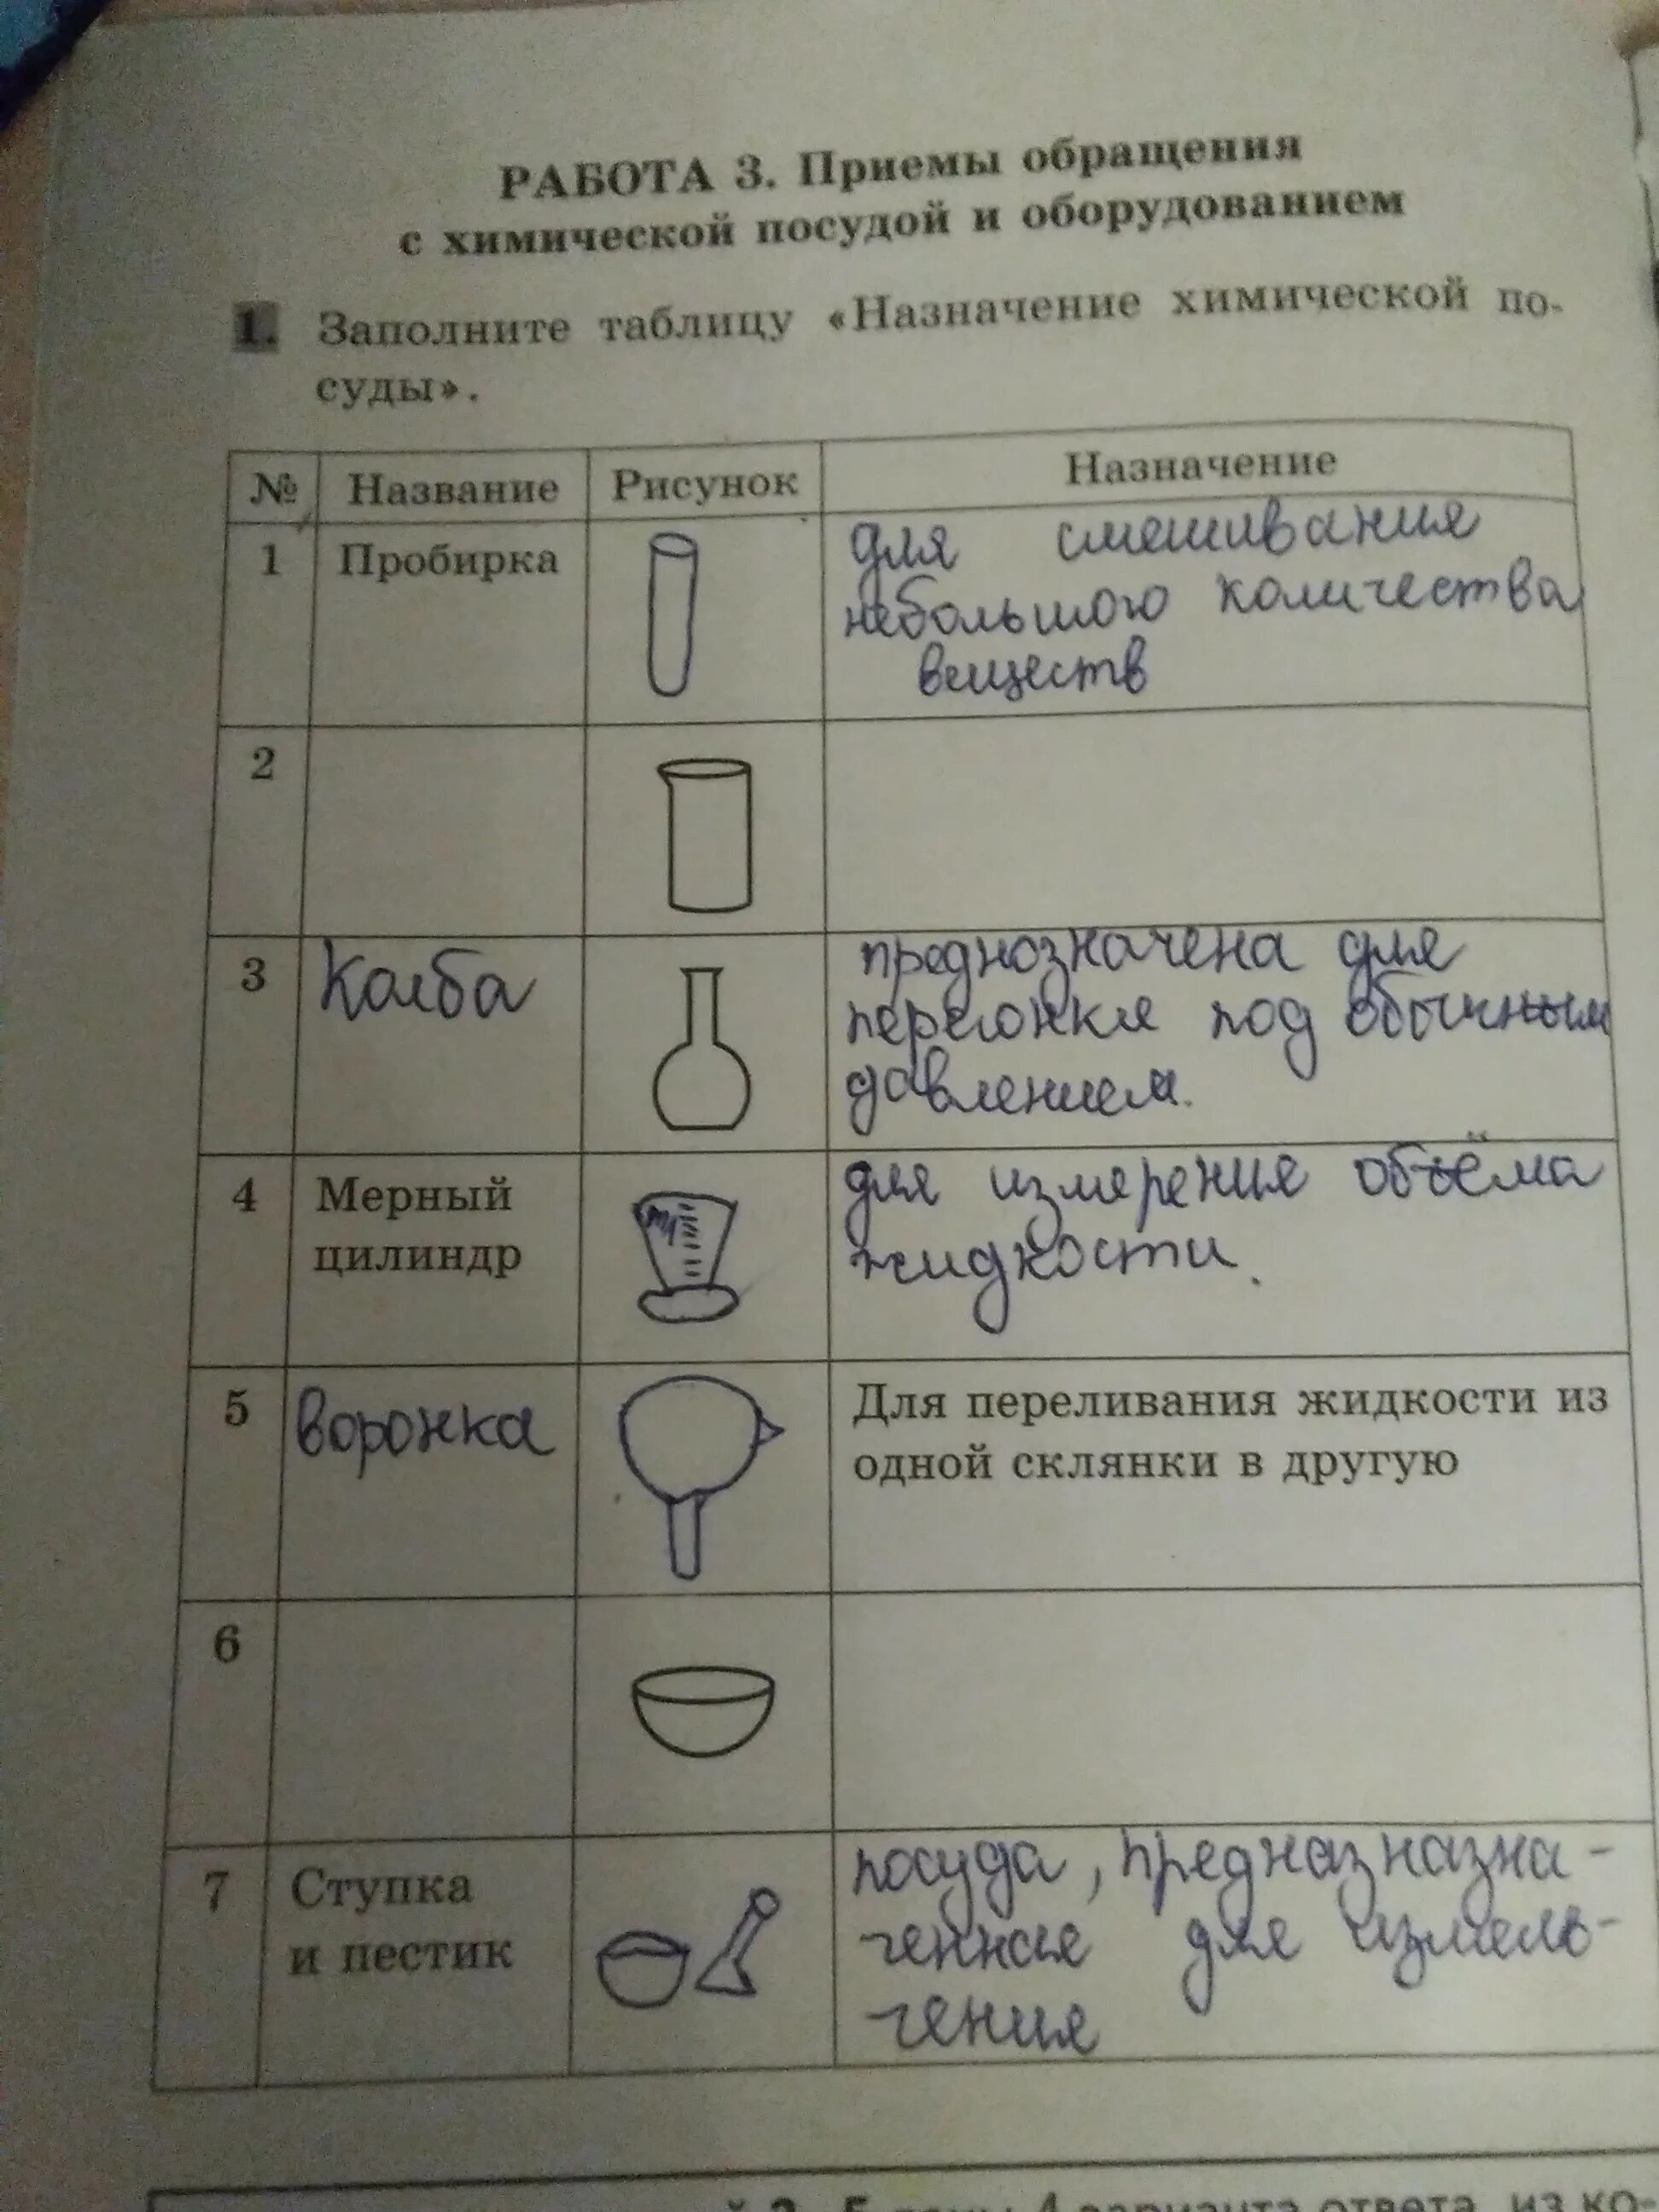 РАБОТА 3. Приемы обращения
с химической посудой и оборудованием
1. Заполните таблицу «Назначение химической по-
суды».
№ Название Рисунок Назначение
1 Пробирка для смешивания
небольшого количества
веществ
2
3 Колба преднозначена для
перегонки под обычным
давлением.
4 Мерный для измерения объёма
цилиндр жидкости.
5 воронка Для переливания жидкости из
одной склянки в другую
6
7 Ступка посуда, предназназна-
и пестик ченная для измель-
чения
4 варианта ответа, из ко-